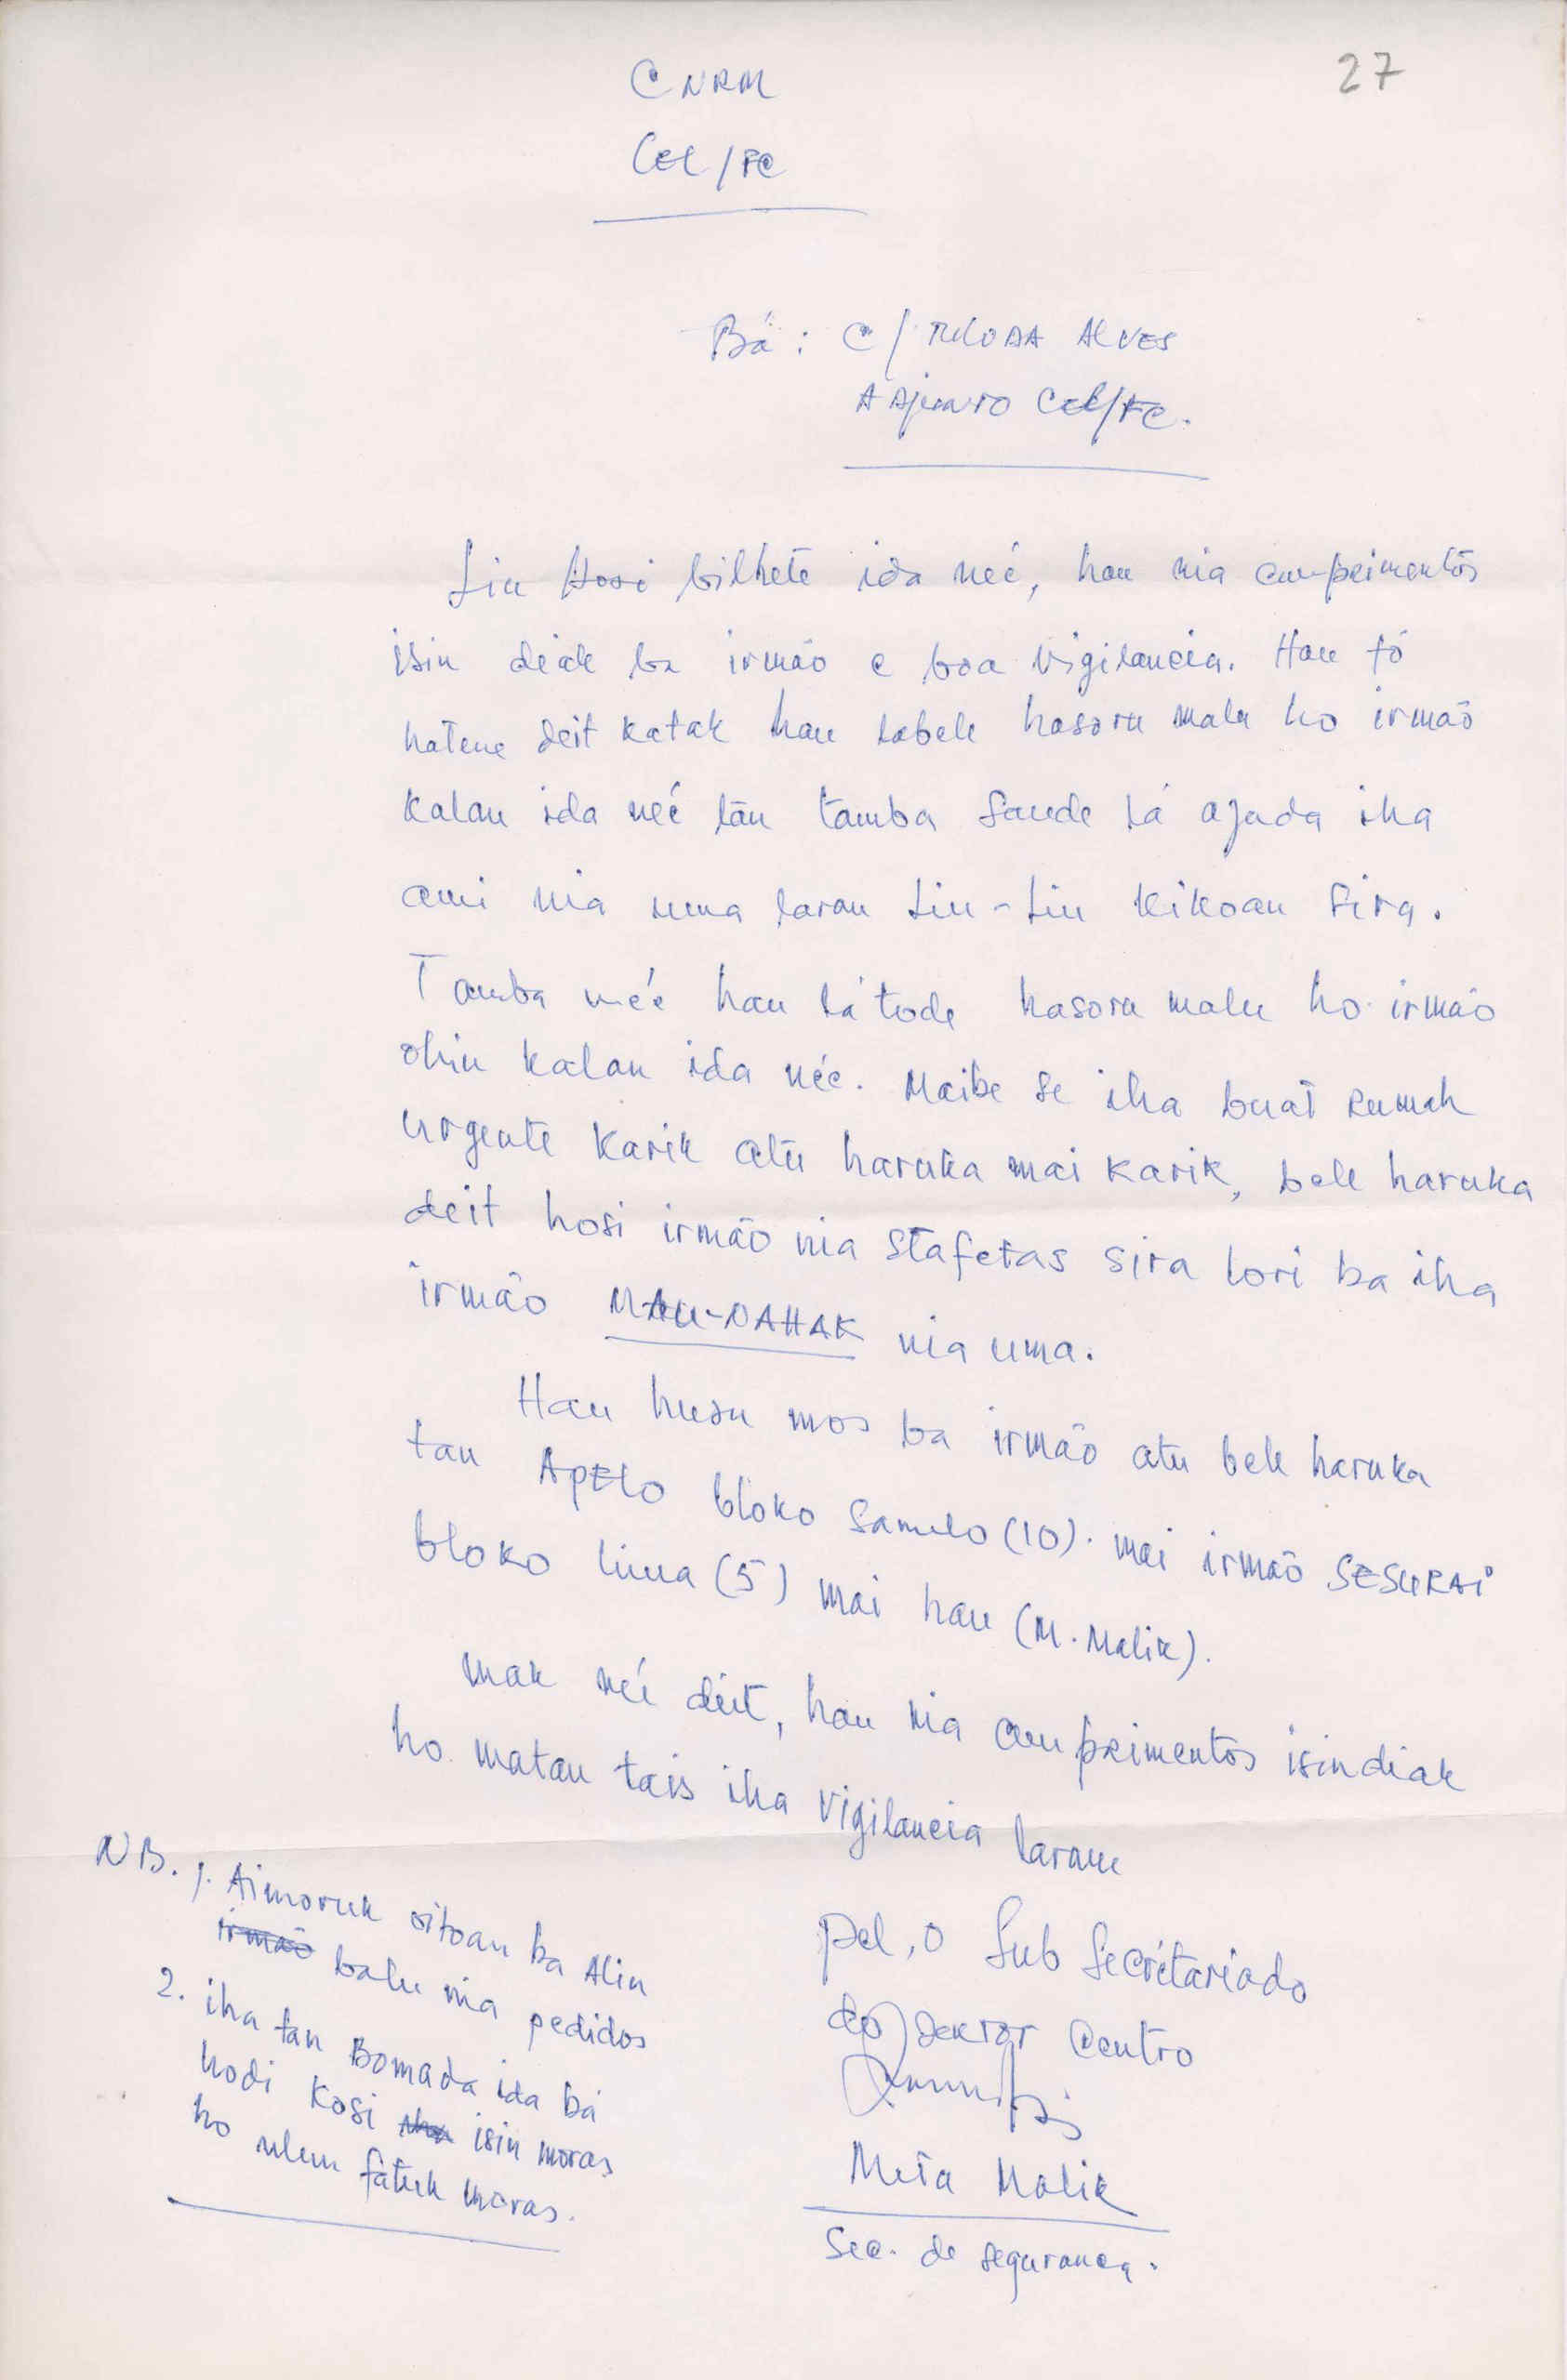 27
CNRM
CEL/FC
Bá: C/ RILODA ALVES
ADJUNTO CEL/FC.
Liu Hosi bilhete ida neé, hau nia cumprimentos
isin diak ba irmão e boa vigilancia. Hau fó
hatene deit katak hau labele hasoru malu ho irmão
kalan ida neé tán tamba saude lá ajuda iha
ami nia uma laran liu-liu kikoan sira.
Tamba neé hau lá tode hasoru malu ho irmão
ohin kalan ida neé. Maibe se iha buat rumah
urgente karik atu haruka mai karik, bele haruka
deit hosi irmão nia stafetas sira lori ba iha
irmão MAU-NAHAK nia uma.
Hau husu mos ba irmão atu bele haruka
tan APELO bloko sanulo (10). mai irmão SESURAI
bloko lima (5) mai hau (M. Malik).
mak neé deit, hau nia cumprimentos isindiak
ho matan tais iha vigilancia laran
NB. 1. Aimoruk oitoan ba Alin
irmão balu nia pedidos
2. iha tan Bomada ida bá
hodi kosi iha isin moras
ho ulun fatuk moras.
pel, o Sub Secretariado
do Sektor Centro
Meta Malik
Sec. de seguranca.